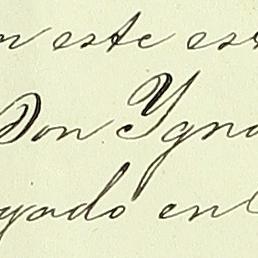 n este es
Don Ygn
gado en